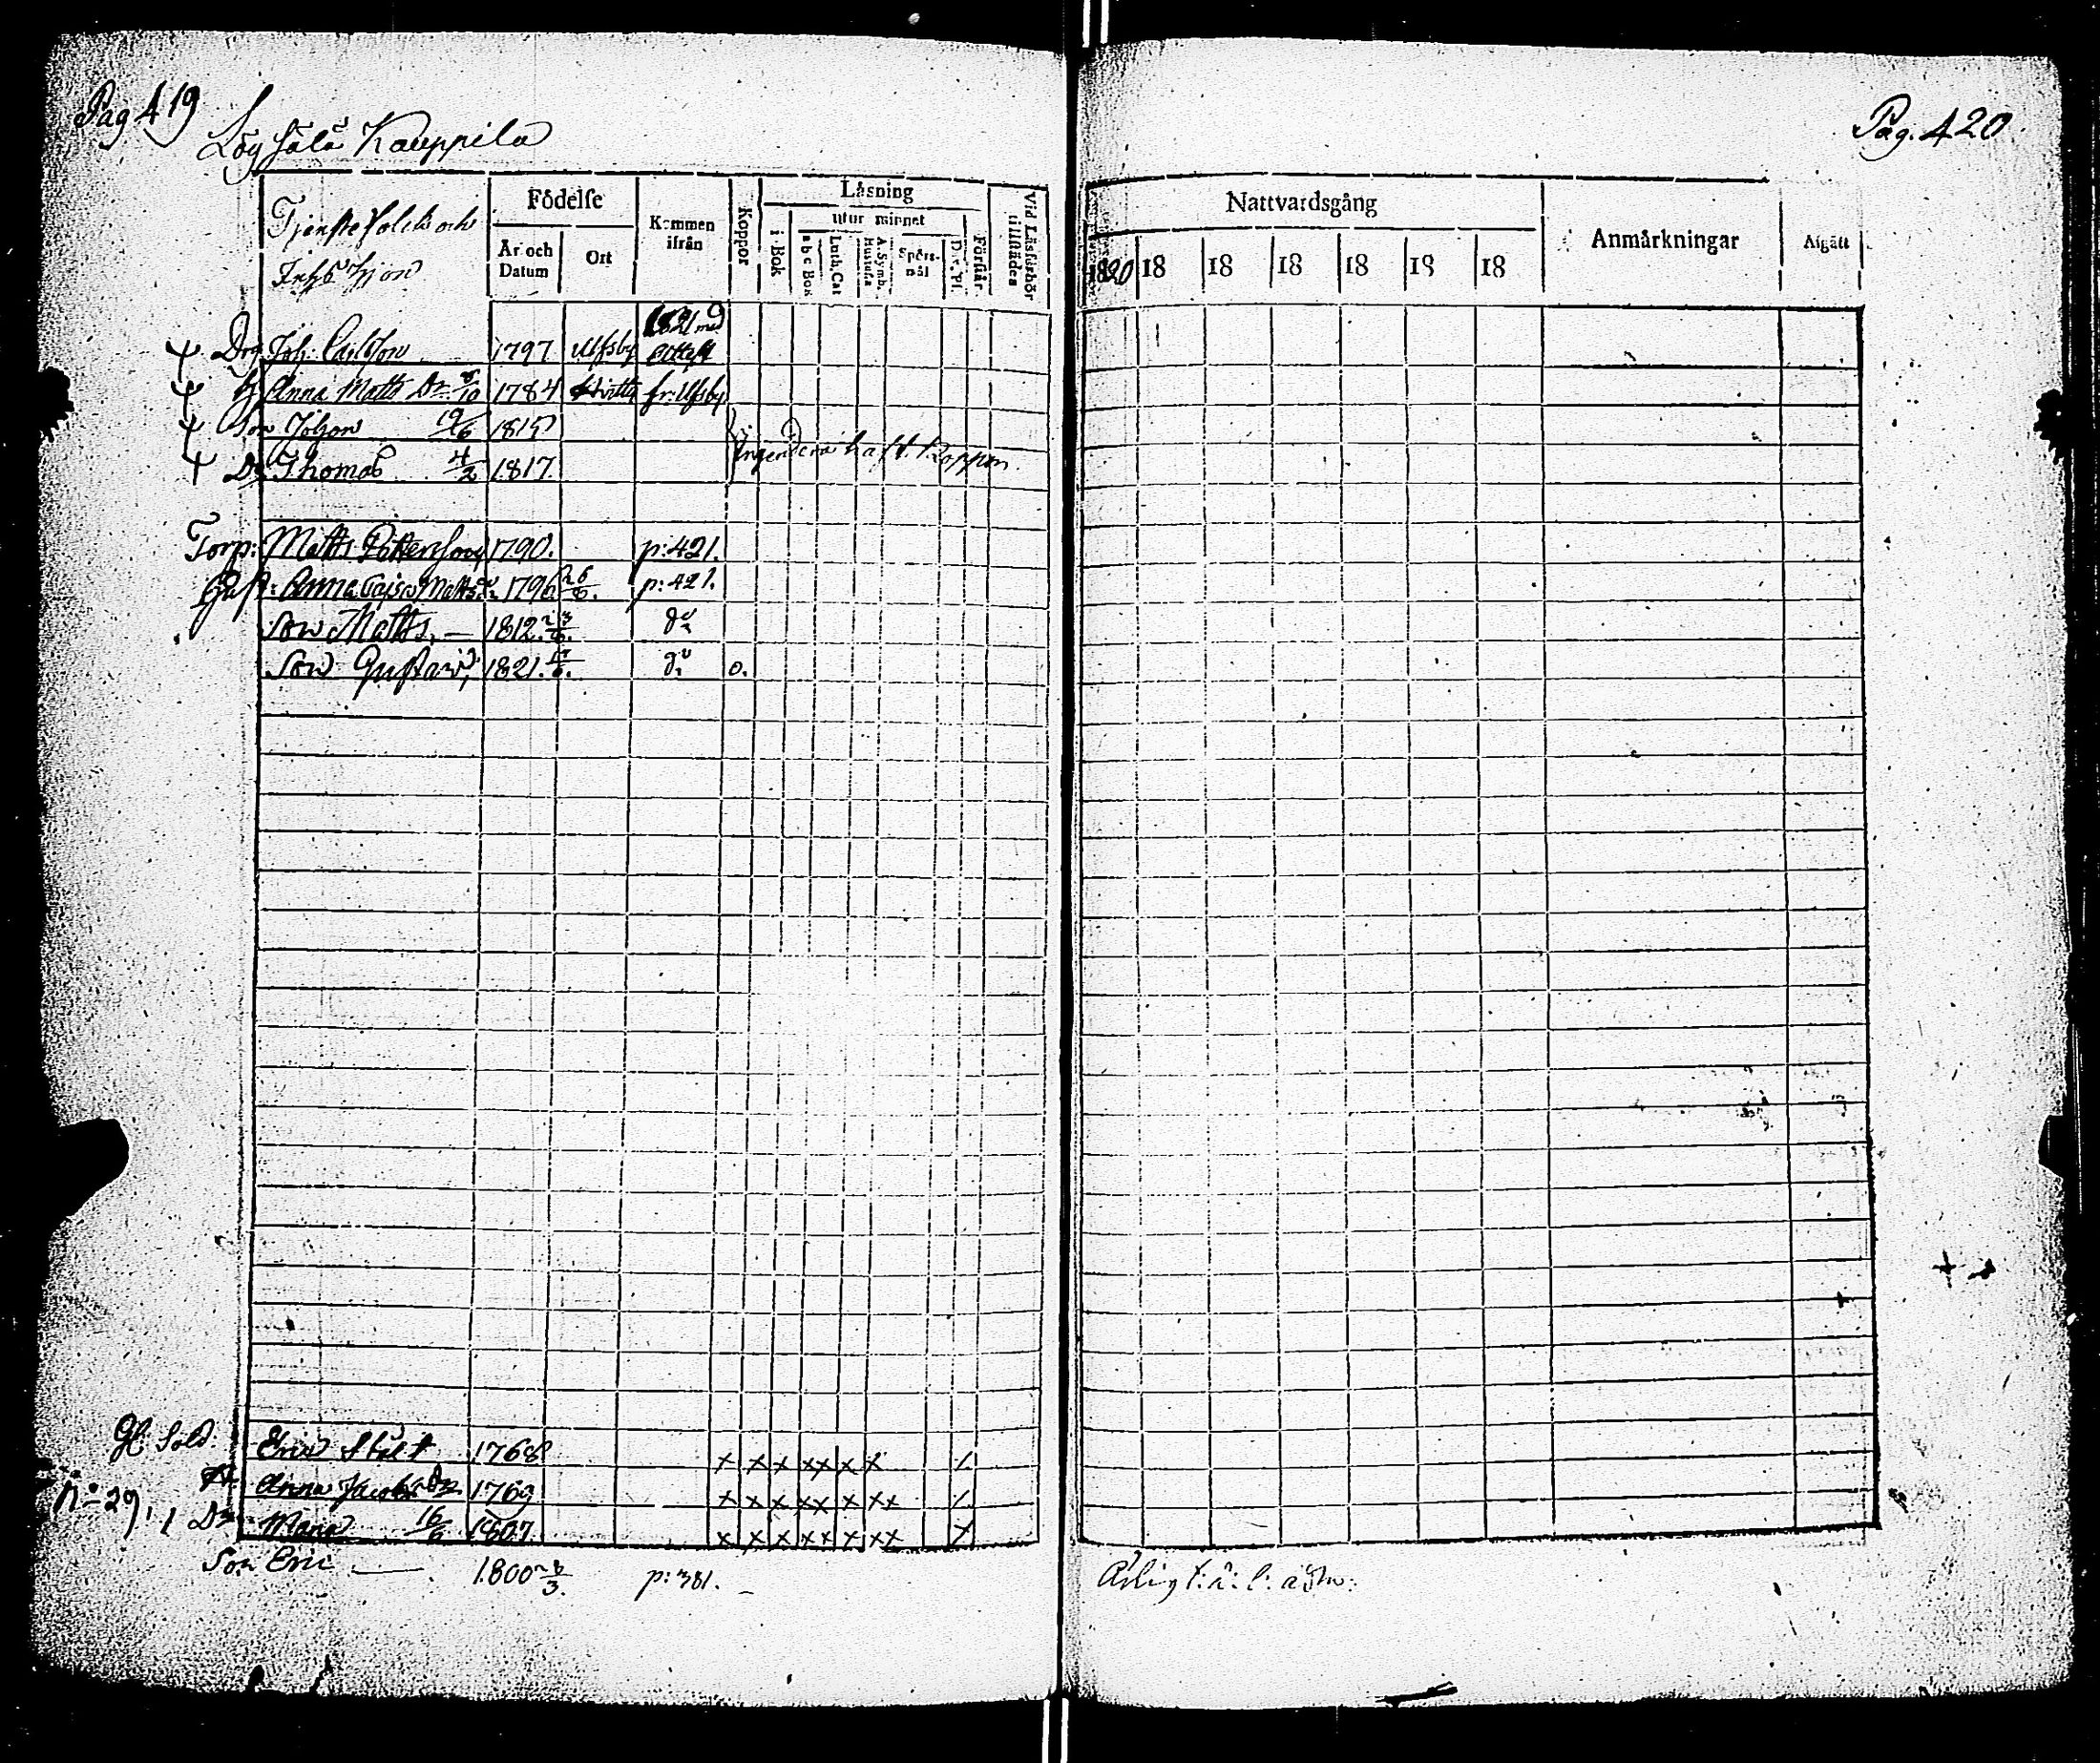 Pag 419
Löysälä Kauppila
Tjenstefolck och
Inhs Hjon
Födelse
År och Datum
Ort
Kommen ifrån
Koppor
Läsning
i Bok
utur minnet
a b c Bok
Luth. Cat
A. Symb.
Hustafla
Spörs-mål
Dav. Pf.
Förstår.
Vid Läsförhör tillstädes
Drg Joh: Carlsson 1797 Ulfsby 1821 med Attest
H Anna Matts Dr 8/10 1784 fr: Ulfsby
Son Johan 19/6 1815
Dr Thomas 4/2 1817.
Ingendera haft Koppor
Torp: Matts Pettersson 1790. p: 421.
Hust: Anna Cajsa Matts dr 1796 26/6. p: 421.
Son Matts, — 1812. 23/6. do
Son Gustav, 1821. 17/6. do o.
Gl: Sold. Eric Stolt 1768 x x x x x x x /.
H. Anna Jacobs Dr 1769 x x x x x x x x /.
No 29. Dr Maria 16/6 1807. x x x x x x x x /
Son Eric — 1800 28/3. p: 381. —
Pag. 420
Nattvardsgång
1820 18 18 18 18 18 18
Anmärkningar
Afgått
Årlig t: ä: l: